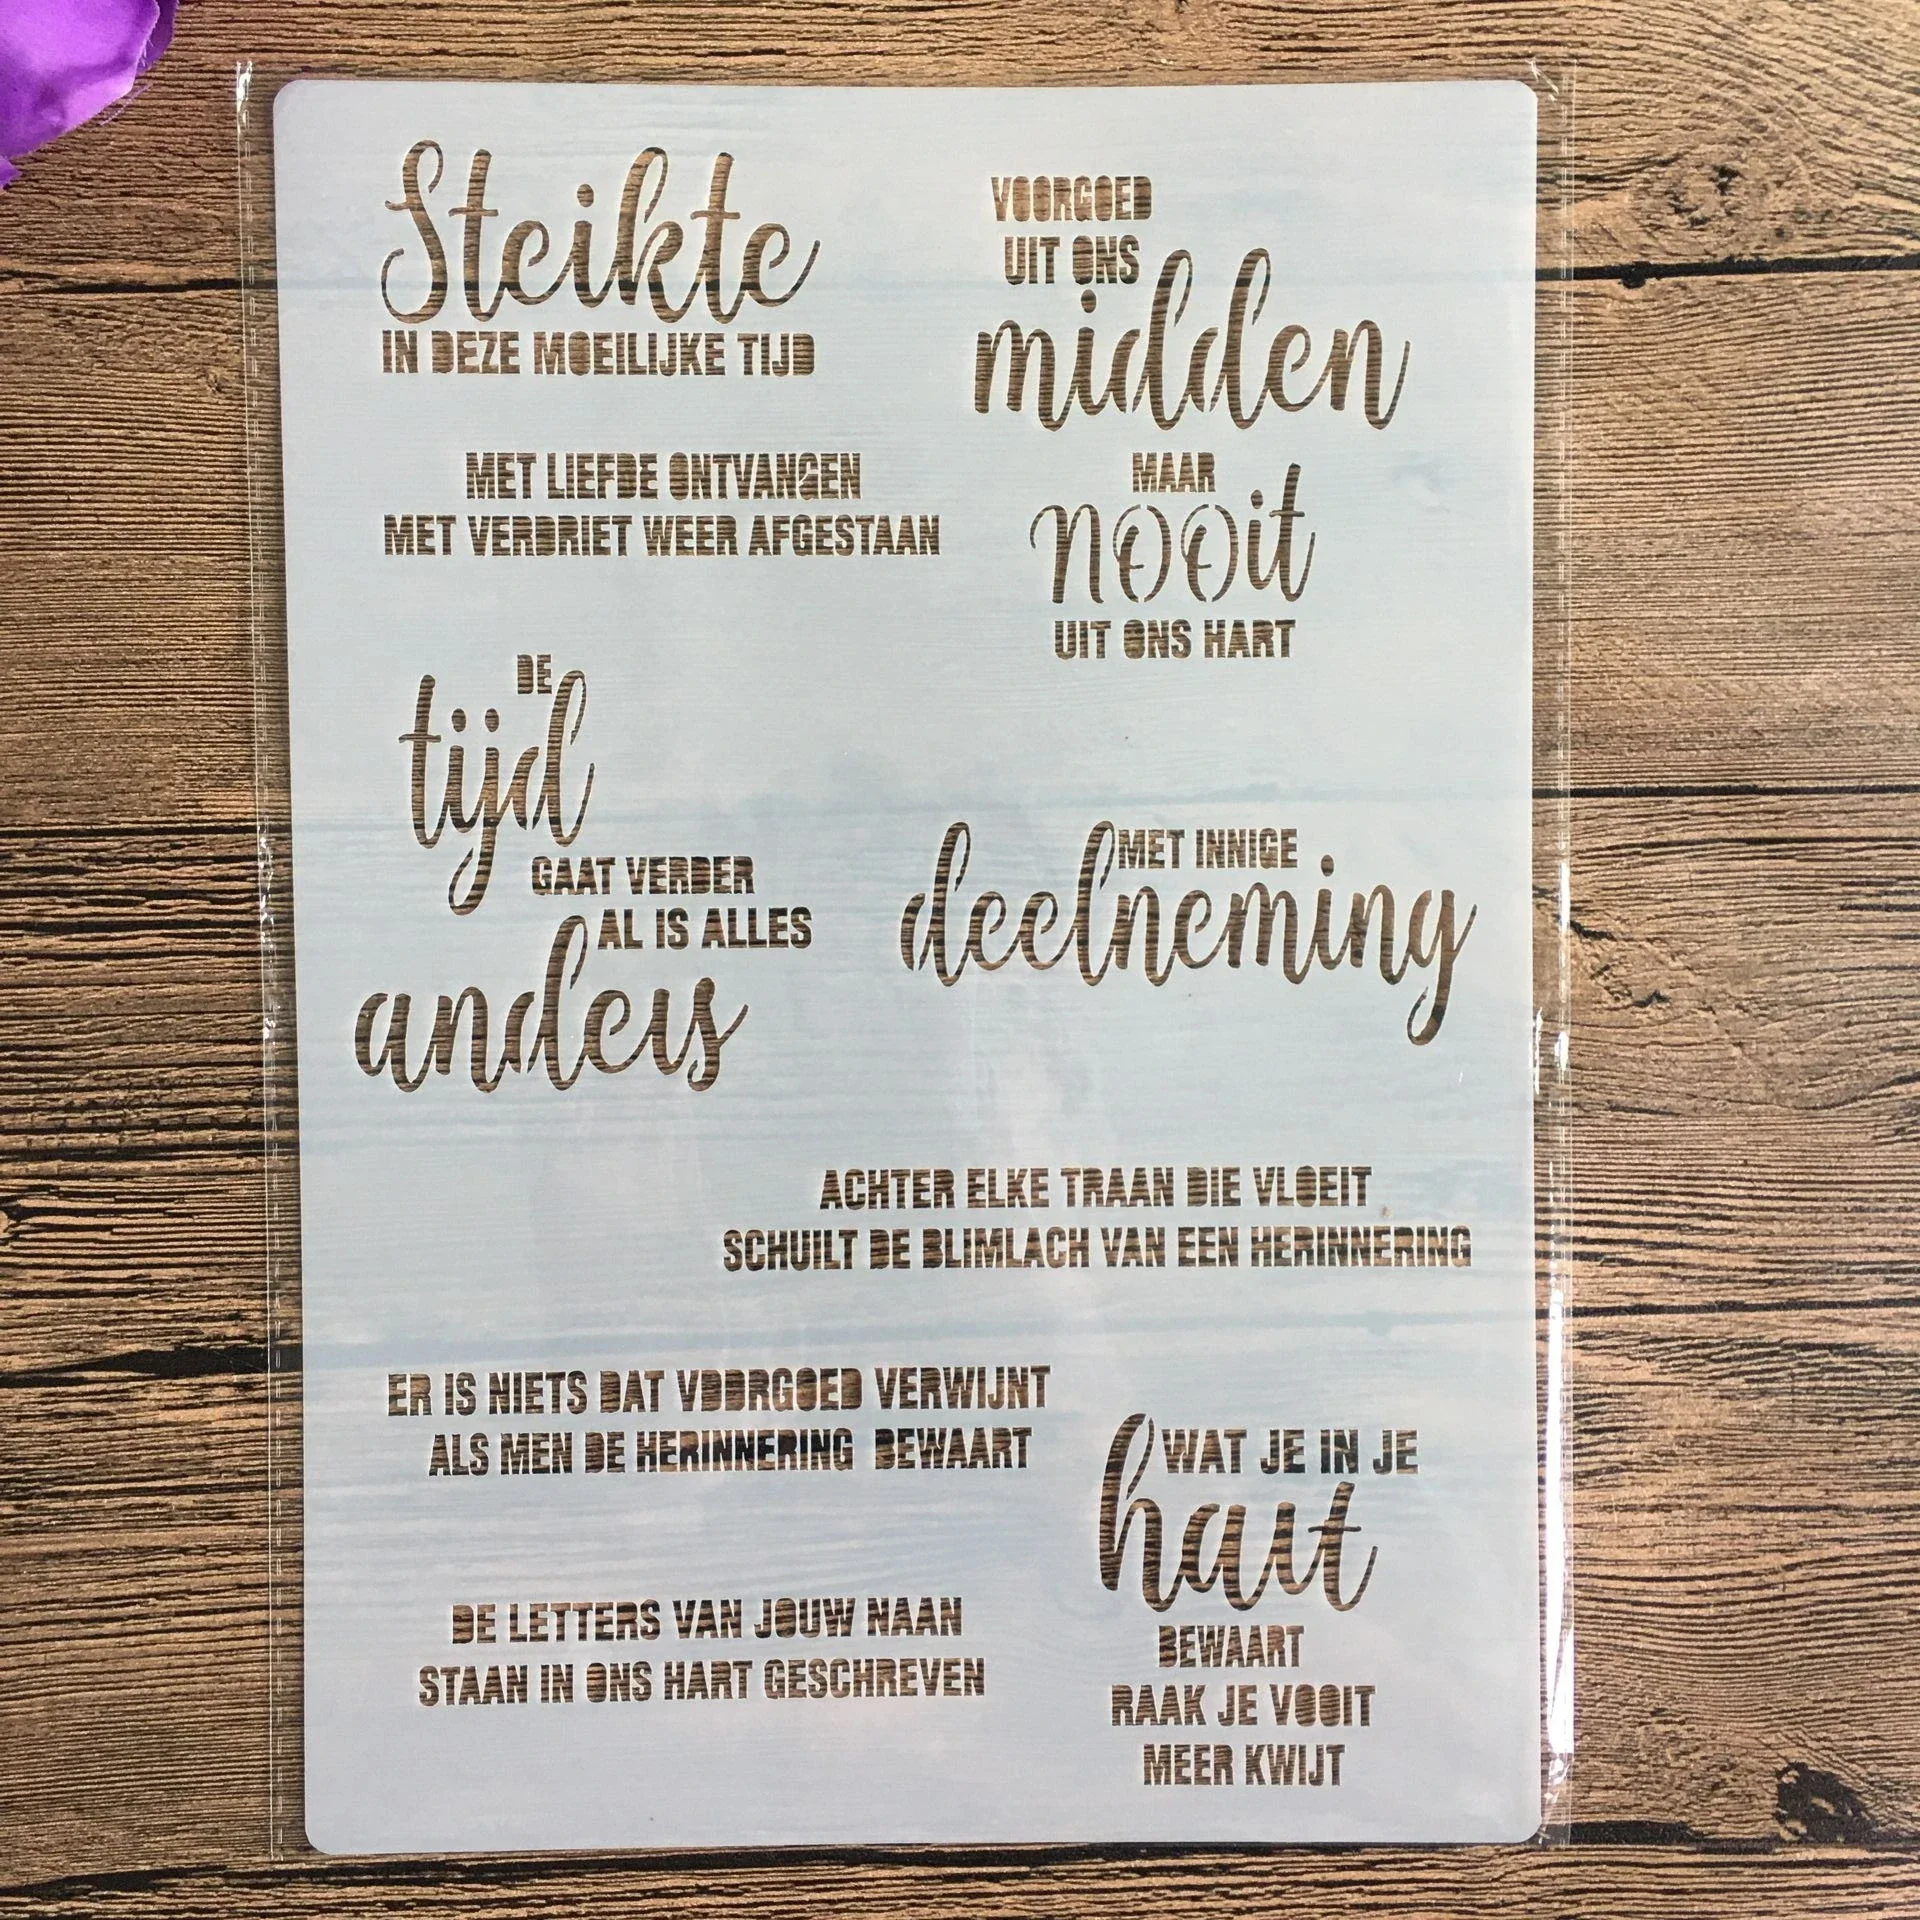 Steikte
IN DEZE MOEILIJKE TIJD
VOORGOED
UIT ONS
midden
MAAR
nooit
UIT ONS HART
MET LIEFDE ONTVANGEN
MET VERDRIET WEER AFGESTAAN
DE
tijd
GAAT VERDER
AL IS ALLES
andeis
MET INNIGE
deelneming
ACHTER ELKE TRAAN DIE VLOEIT
SCHUILT DE BLIMLACH VAN EEN HERINNERING
ER IS NIETS DAT VOORGOED VERWIJNT
ALS MEN DE HERINNERING BEWAART
WAT JE IN JE
hait
BEWAART
RAAK JE VOOIT
MEER KWIJT
DE LETTERS VAN JOUW NAAN
STAAN IN ONS HART GESCHREVEN